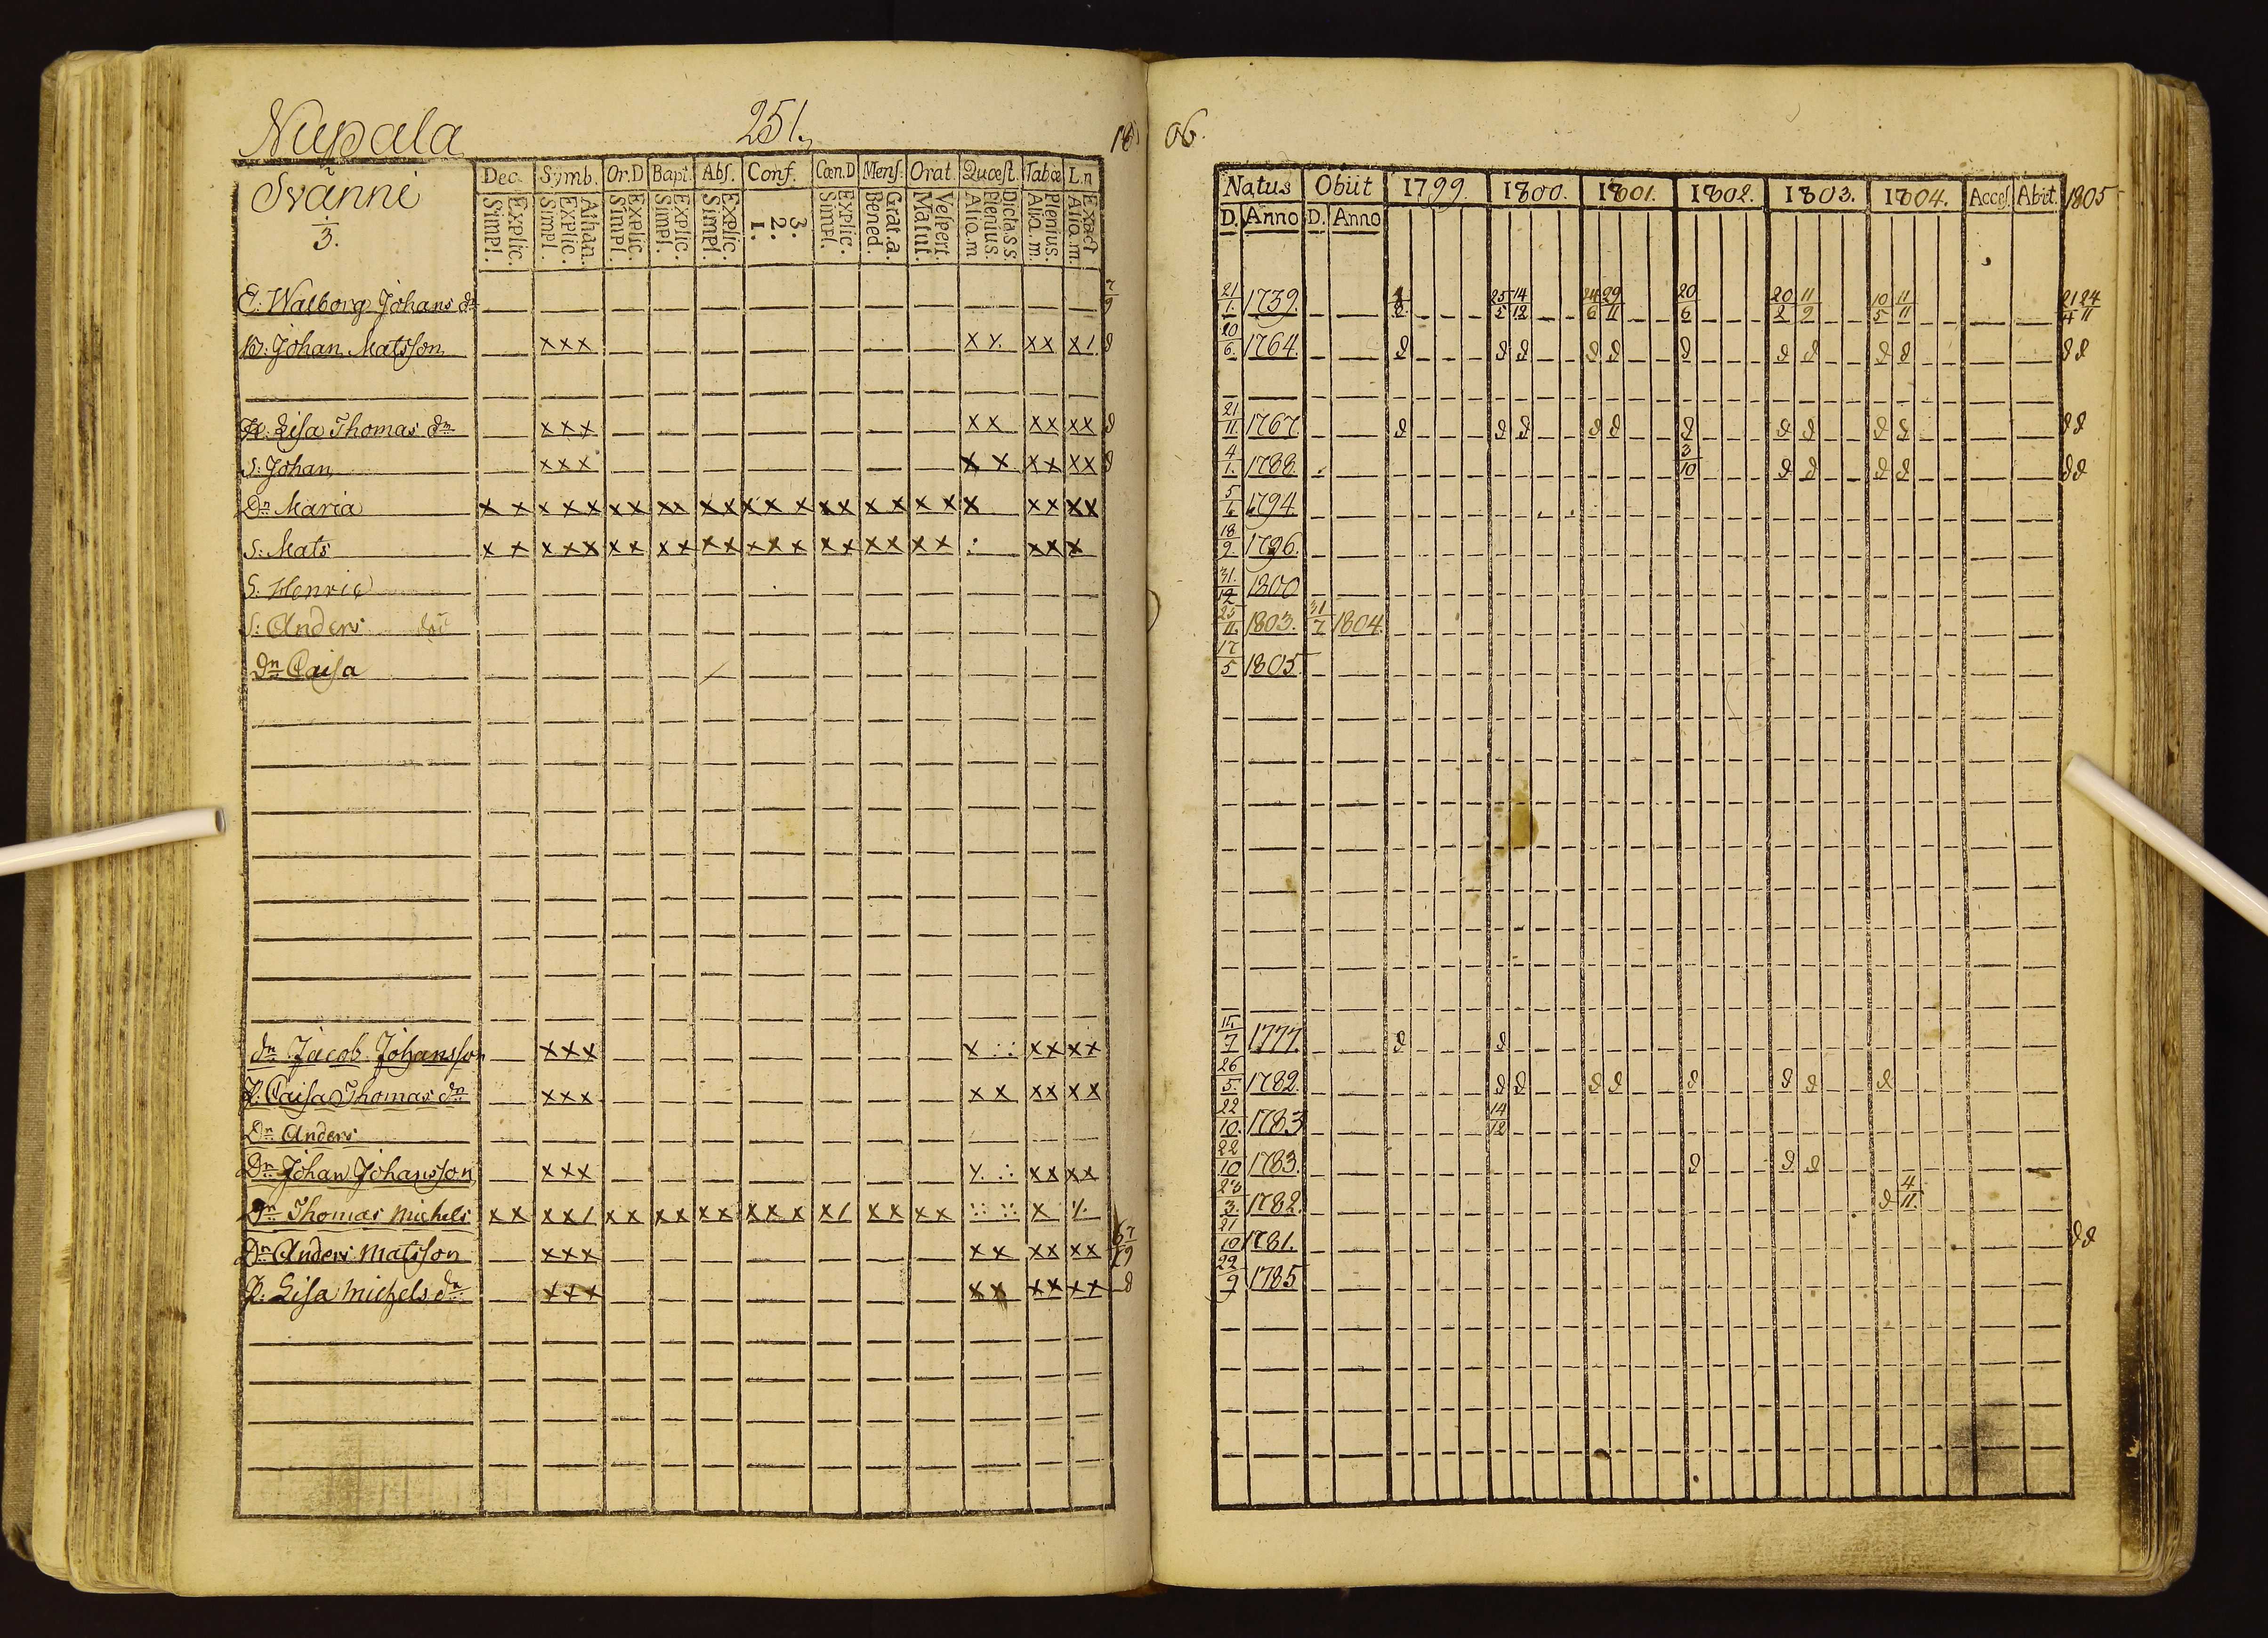 Nuppala 251. 18 06.
Dec. Symb. Or.D Bapt. Abs. Conf. Cœn.D Mens. Orat. Quæst. Tabœ L.n
Svänni
3.
Explic. Simpl. Athan. Explic. Simpl. Explic. Simpl. Explic. Simpl. Explic. Simpl. 3. 2. 1. Explic. Simpl. Grat.a. Bened. Vespert. Matut. Dictass Plenius. Aliq.m Plenius. Aliq.m. Exact Aliq.m.
Natus Obiit 1799. 1800. 1801. 1802. 1803. 1804. Acces. Abiit. 1805
D. Anno D. Anno
E: Walborg Johans dr 7/9 21/1. 1739. 25/5 14/12 24/6 29/11 20/6 20/2 11/9 10/5 11/11 21/4 24/11
B: Johan Matsson xxx xx xx x/ d 10/6. 1764. d d d d d d d d d d d d
H: Lisa Thomas dr xxx xx xx xx d 21/11. 1767. d d d d d d d d d d d d
S: Johan xxx x x xx xx d 4/1. 1788. 3/10 d d d d d d
Dr Maria x x x xx xx xx xx xx x xx x x x x x x xx xx 1794.
S: Mats x x xxx xx xx xx xxx xx xx xx : xx x 18/9. 1796.
S: Henric 31./12 1800
S: Anders död 25/11. 1803. 31/7 1804.
Dr Caisa 17/5 1805.
dr Jacob Johansson xxx x :: xx xx 15/7 1777. d d
P: Caisa Thomas dr xxx x x xx x x 26/5. 1782. d d d d d d d d
Dr Anders 22/10. 1783 14/12
Dr Johan Johansson xxx x : xx xx 22/10 1783. d d d
Dr Thomas Michels xx xx/ xx xx xx xxx x/ xx xx :: :: x % 23/3. 1782. d 4/11.
Dr Anders Matsson xxx xx xx xx 21/10 1781. d d
P: Lisa Michels dr xxx xx xx xx d 22/9 1785